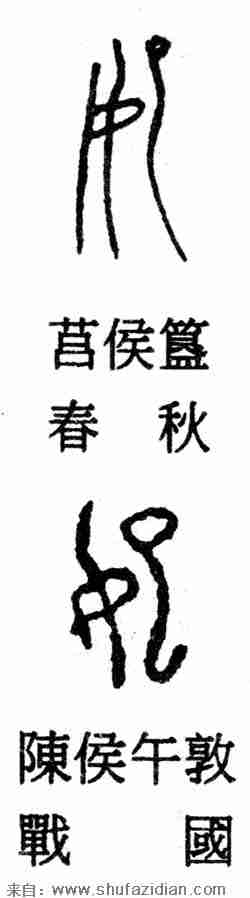 莒侯簋
春秋
陳侯午敦
戰國
来自：www.shufazidian.com